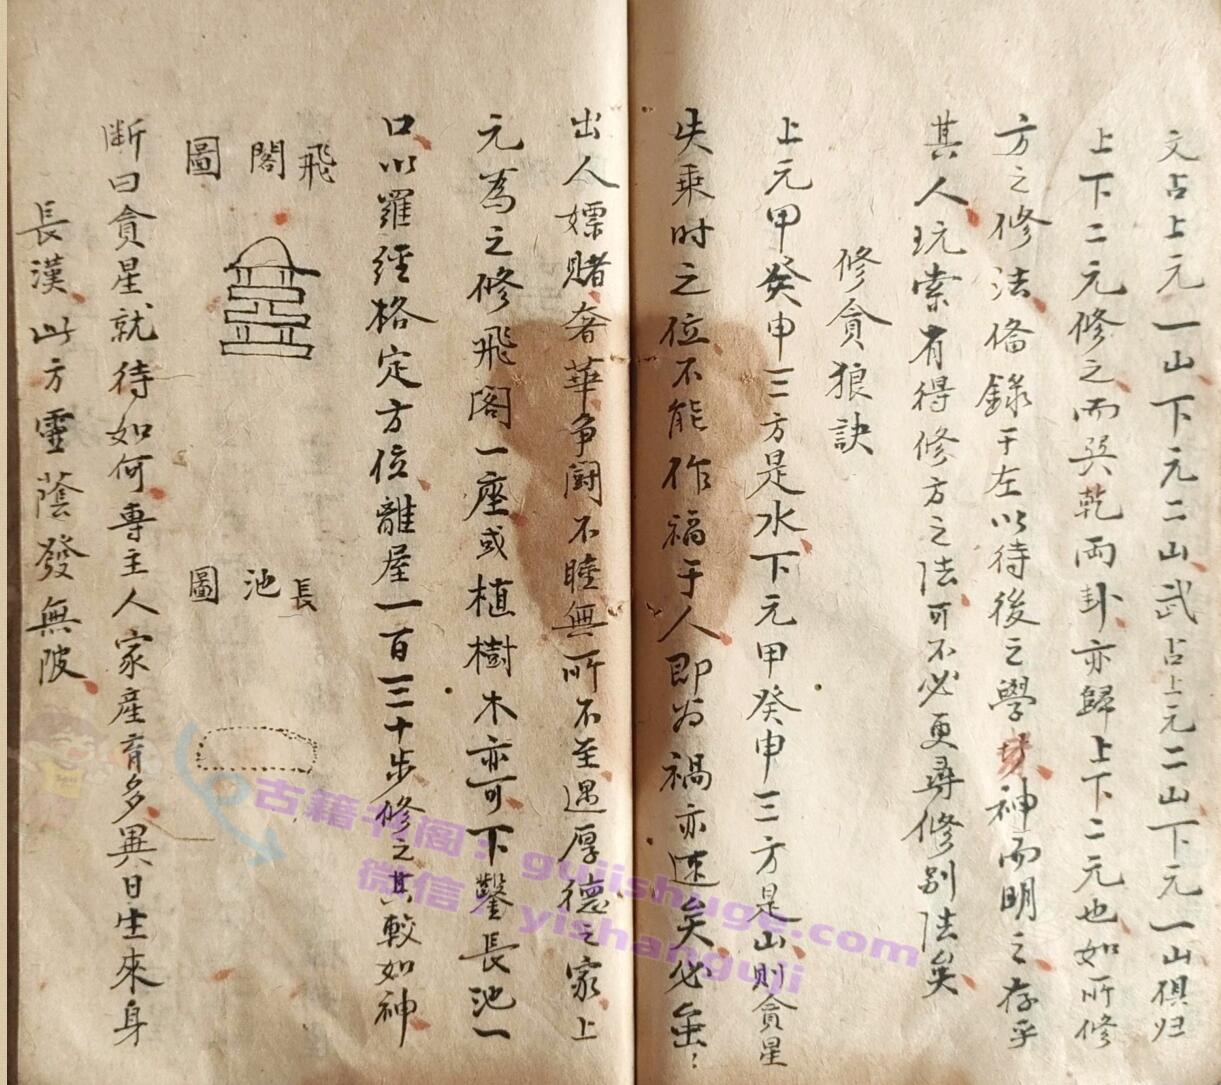 文占上元一山下元二山武占上元二山下元一山俱归
上下二元修之而巽乾両卦亦歸上下二元也如所修
方之修法俻錄于左以待後之學 神而明之存乎
其人玩索有得修方之法可不必更尋修别法矣
修貪狼訣
上元甲癸申三方是水下元甲癸申三方是山則貪星
失乗时之位不能作福于人即为禍亦速矣必
出人嫖賭奢華争鬪不睦無所不至遇厚德之家上
元為之修飛阁一座或植樹木亦可下鑿長池一
口以羅經格定方位離屋一百三十步修之其較如神
飛閣圖
長池圖
断曰貪星就待如何專主人家産育多異日生來身
長漢此方靈蔭發無陂
古籍书阁：gujishuge.com
微信：yishanguji